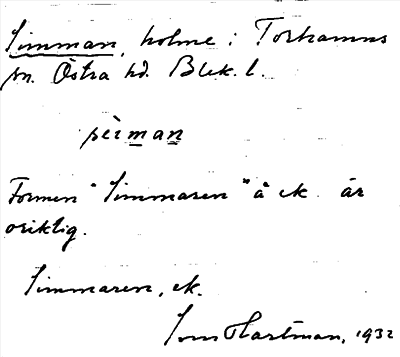 Simman, holme i Torhamns
sn. Östra hd. Blek. l.
Formen "Simmaren" å ek. är
oriktig.
Simmaren, ek.
Hartman, 1932